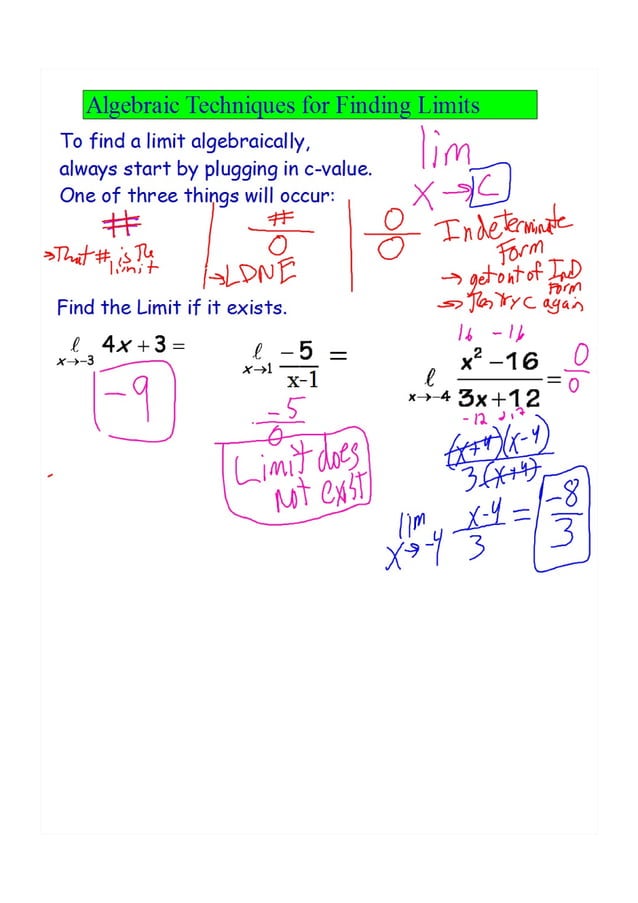 Algebraic Techniques for Finding Limits
To find a limit algebraically,
always start by plugging in c-value.
One of three things will occur:
lim
x → C
#
→ That # is the limit
#/0
→ LDNE
0/0
Indeterminate Form
→ get out of IND Form
→ Then try C again
Find the Limit if it exists.
ℓ x→−3 4x + 3 =
-9
ℓ x→1 −5/x-1 =
-5/0
Limit does
not exist
16 - 16
ℓ x→−4 x² −16/3x+12 = 0/0
-12
(x+4)(x-4)/3(x+4)
lim x→-4 x-4/3 = -8/3